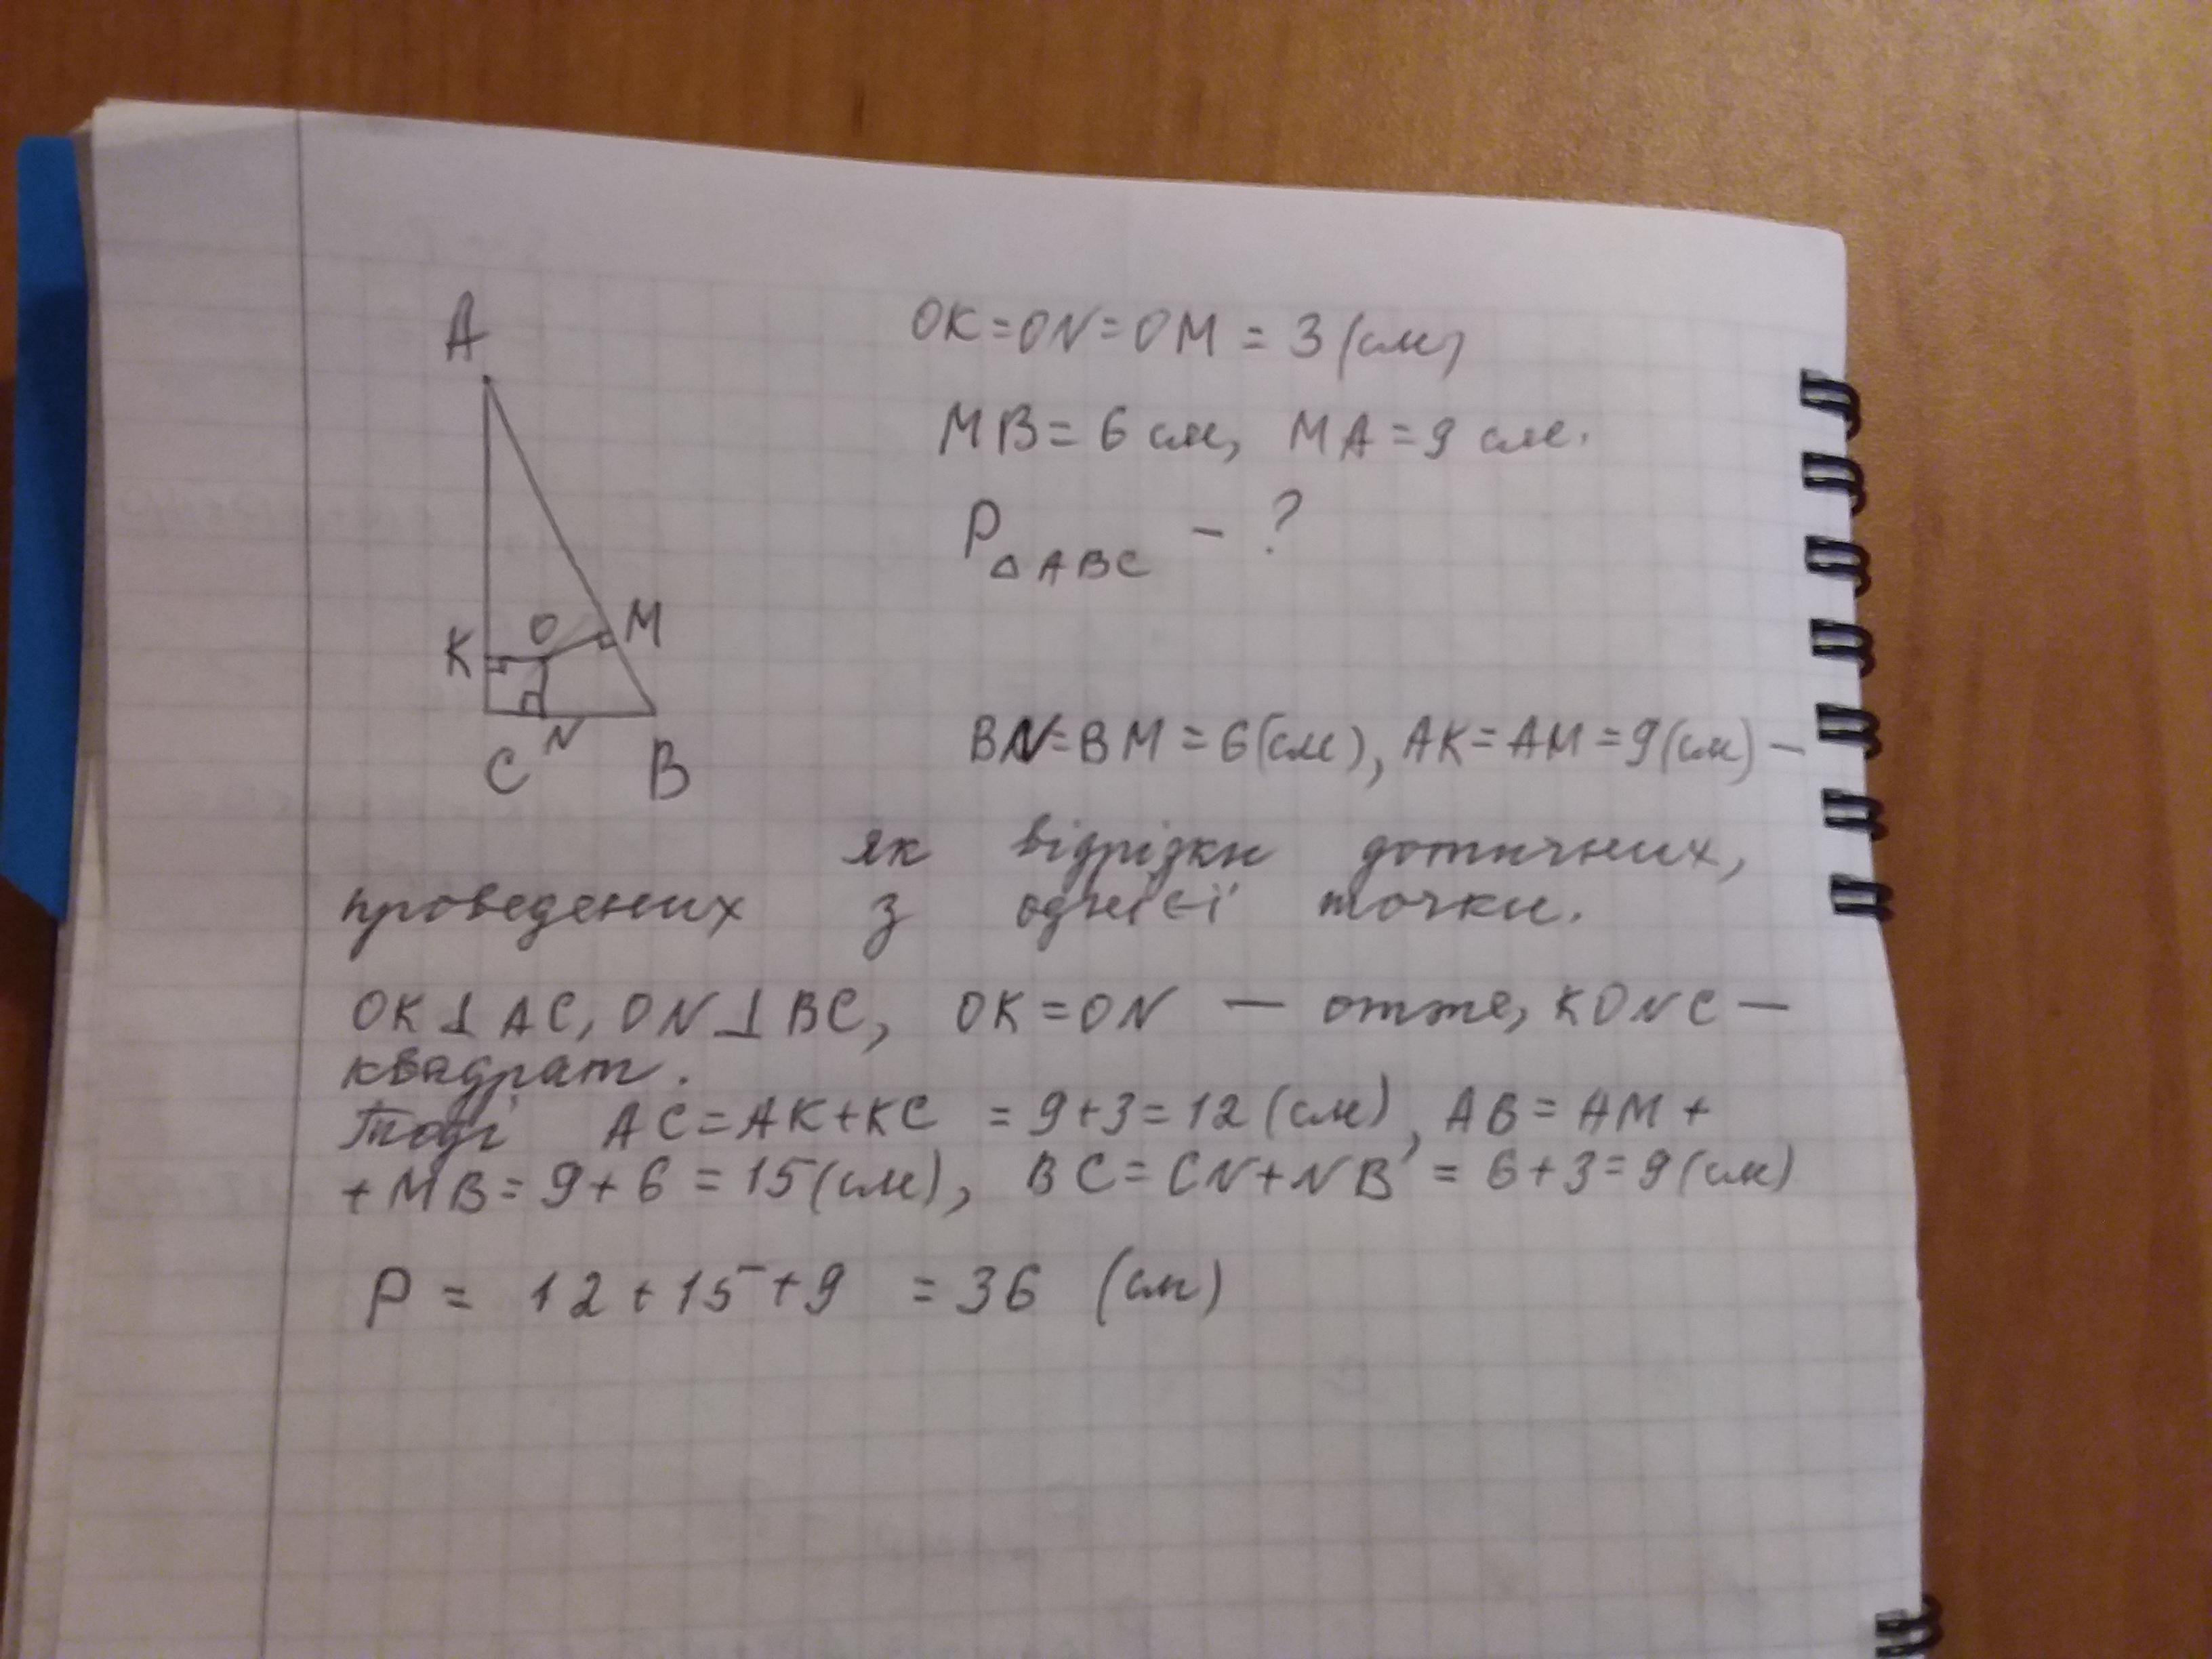 A
OK=ON=OM = 3 (см)
MB= 6 см, MA=9 см.
P△ABC - ?
K O M
C N B
BN=BM=6(см), AK=AM=9(см) —
як відрізки дотичних,
проведених з однієї точки.
OK⊥AC, ON⊥BC, OK=ON — отже, KONC —
квадрат.
Тоді AC=AK+KC =9+3=12 (см), AB= AM+
+MB=9+6=15(см), BC=CN+NB = 6+3=9(см)
P = 12+15+9 =36 (см)